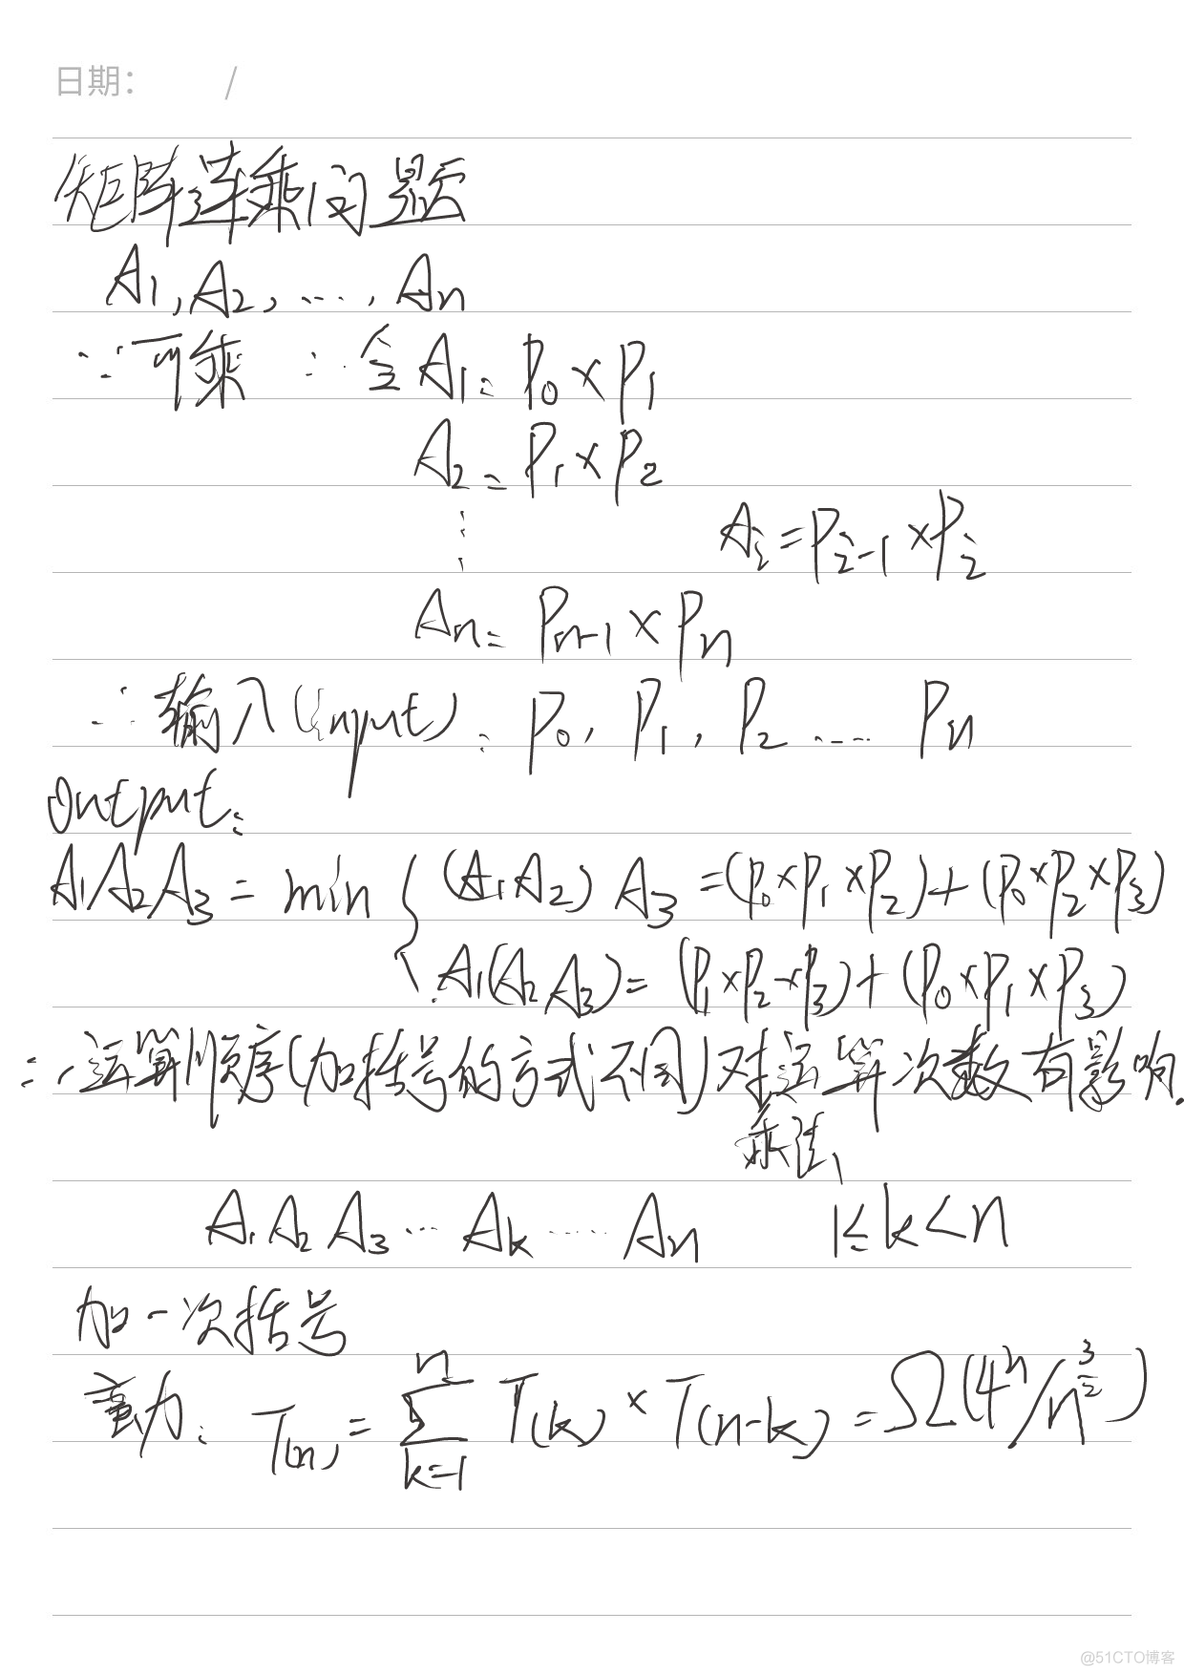 日期: /
矩阵连乘问题
A₁, A₂, ..., Aₙ
∵可乘 ∴ 令 A₁ = P₀ × P₁
A₂ = P₁ × P₂
⋮ Aᵢ = Pᵢ₋₁ × Pᵢ
Aₙ = Pₙ₋₁ × Pₙ
∴ 输入(input): P₀, P₁, P₂ .... Pₙ
Output:
A₁A₂A₃ = min { (A₁A₂) A₃ = (P₀×P₁×P₂) + (P₀×P₂×P₃)
A₁(A₂A₃) = (P₁×P₂×P₃) + (P₀×P₁×P₃)
∴运算顺序(加括号的方式不同)对运算次数有影响.
乘法
A₁ A₂ A₃ ... Aₖ ..... Aₙ 1≤k<n
加一次括号
蛮力: T(n) = ∑ₖ₌₁ⁿ T(k) × T(n-k) = Ω(4ⁿ/n^(3/2))
@51CTO博客